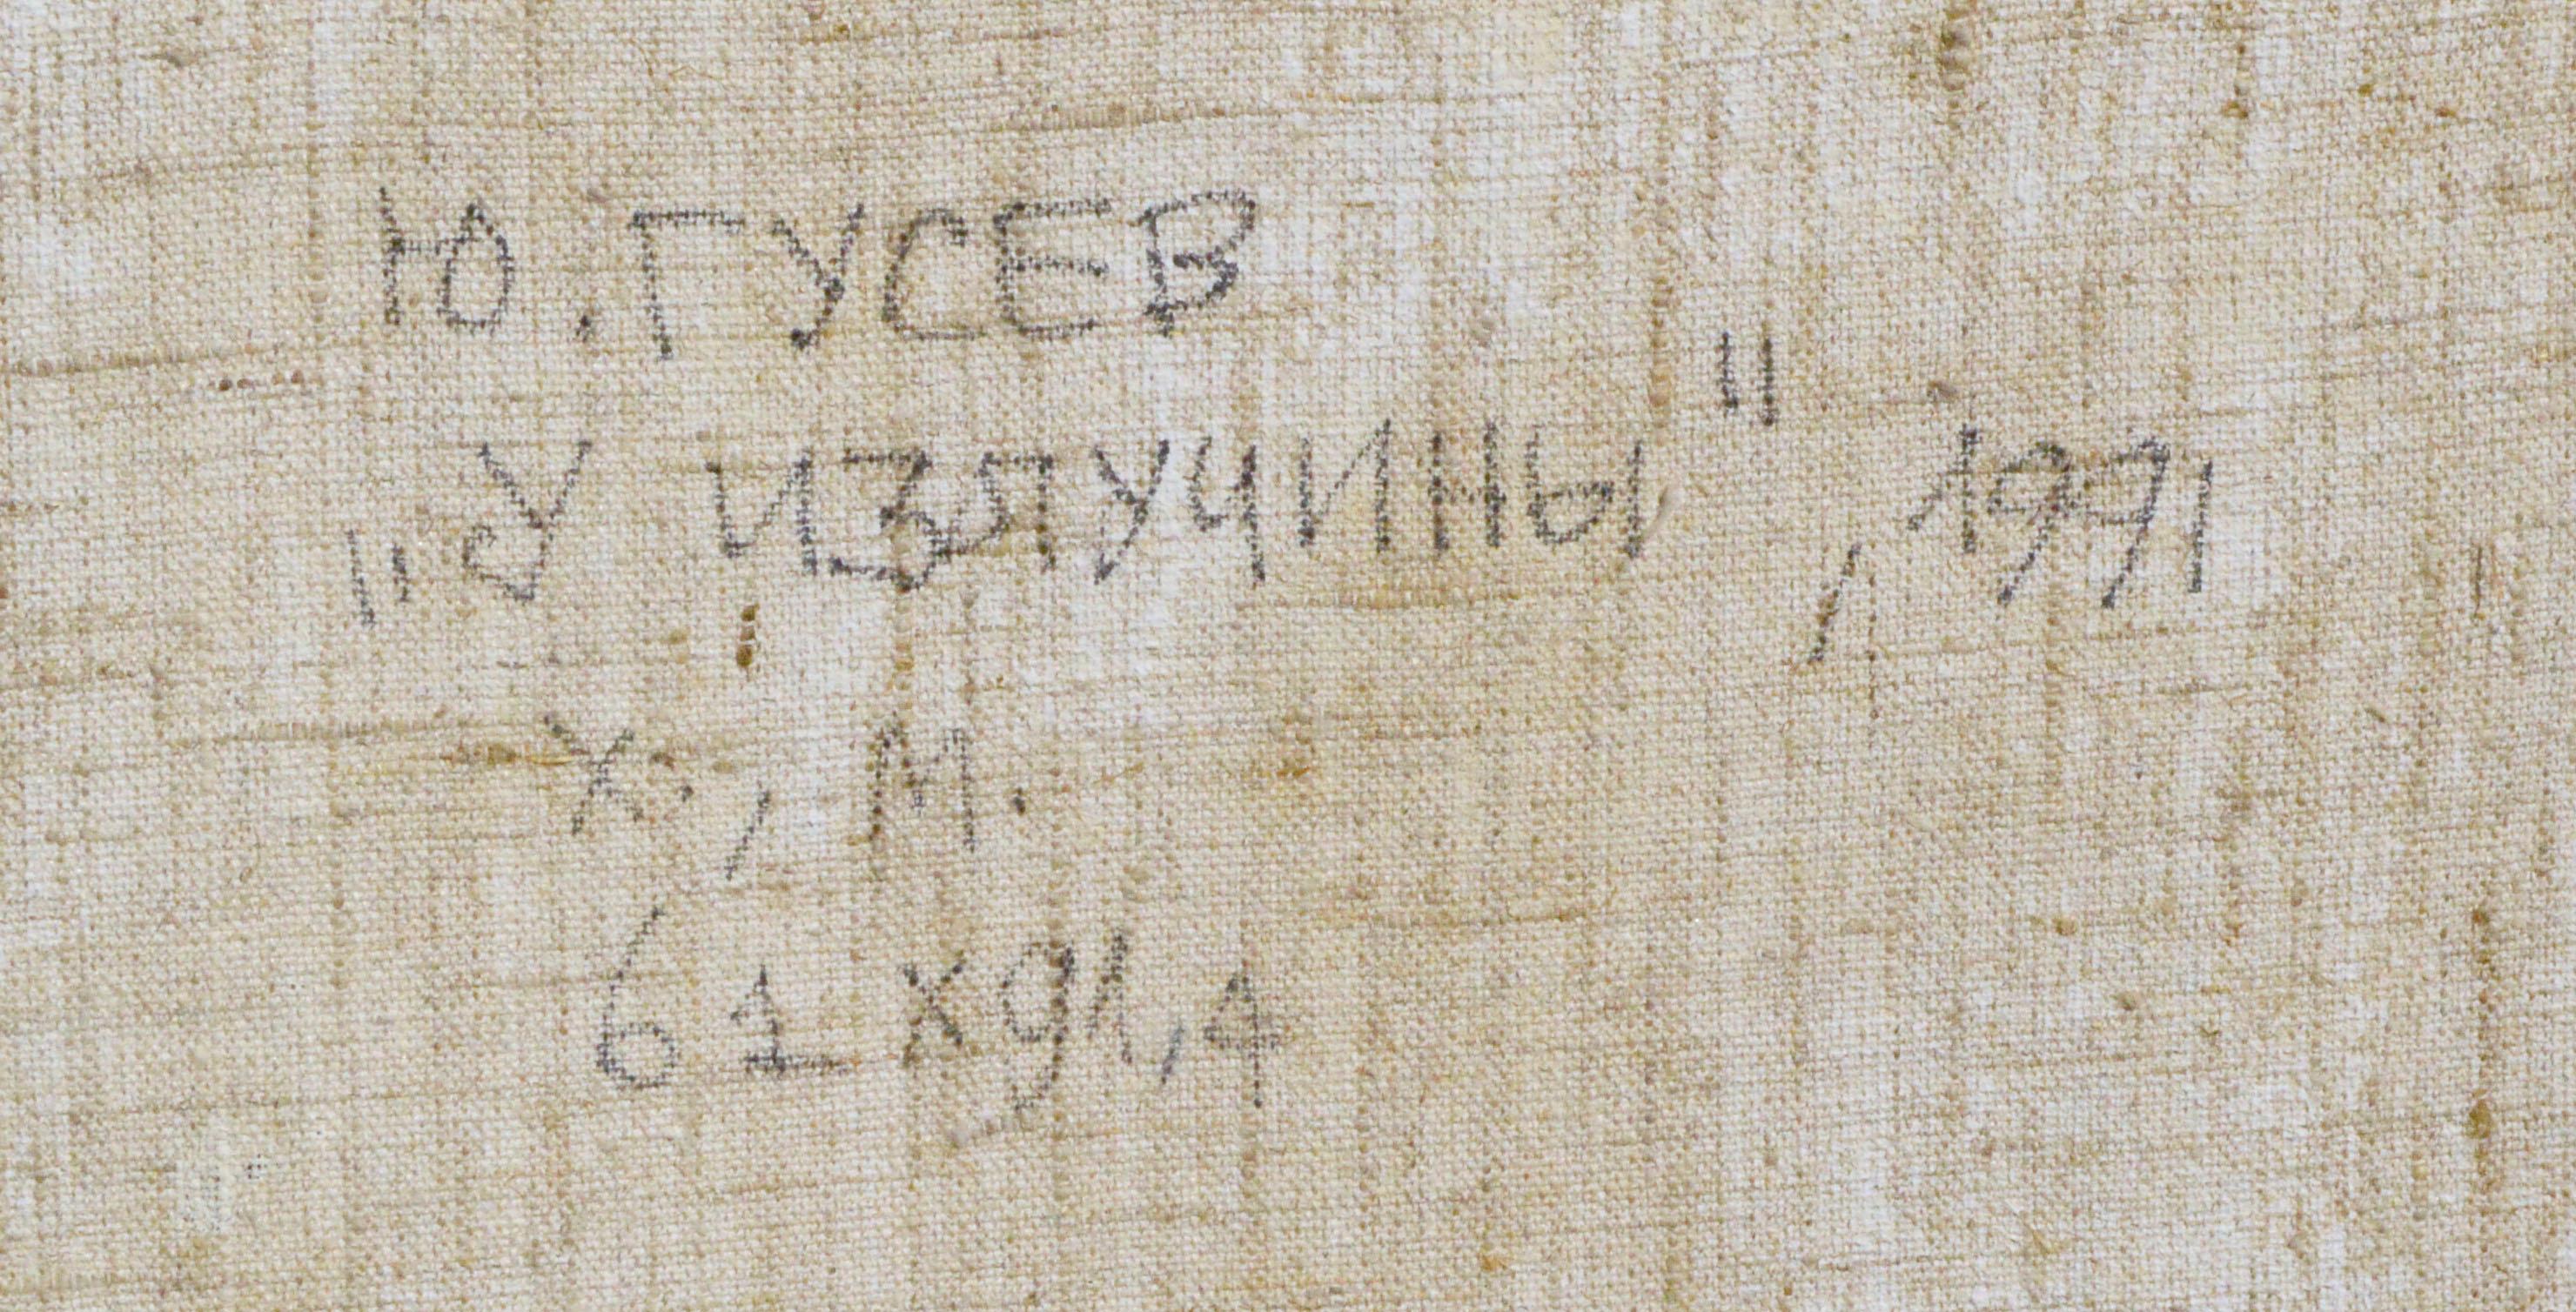 Ю. ГУСЕВ
"У ИЗЛУЧИНЫ", 1991
Х., М.
61 х 91,4